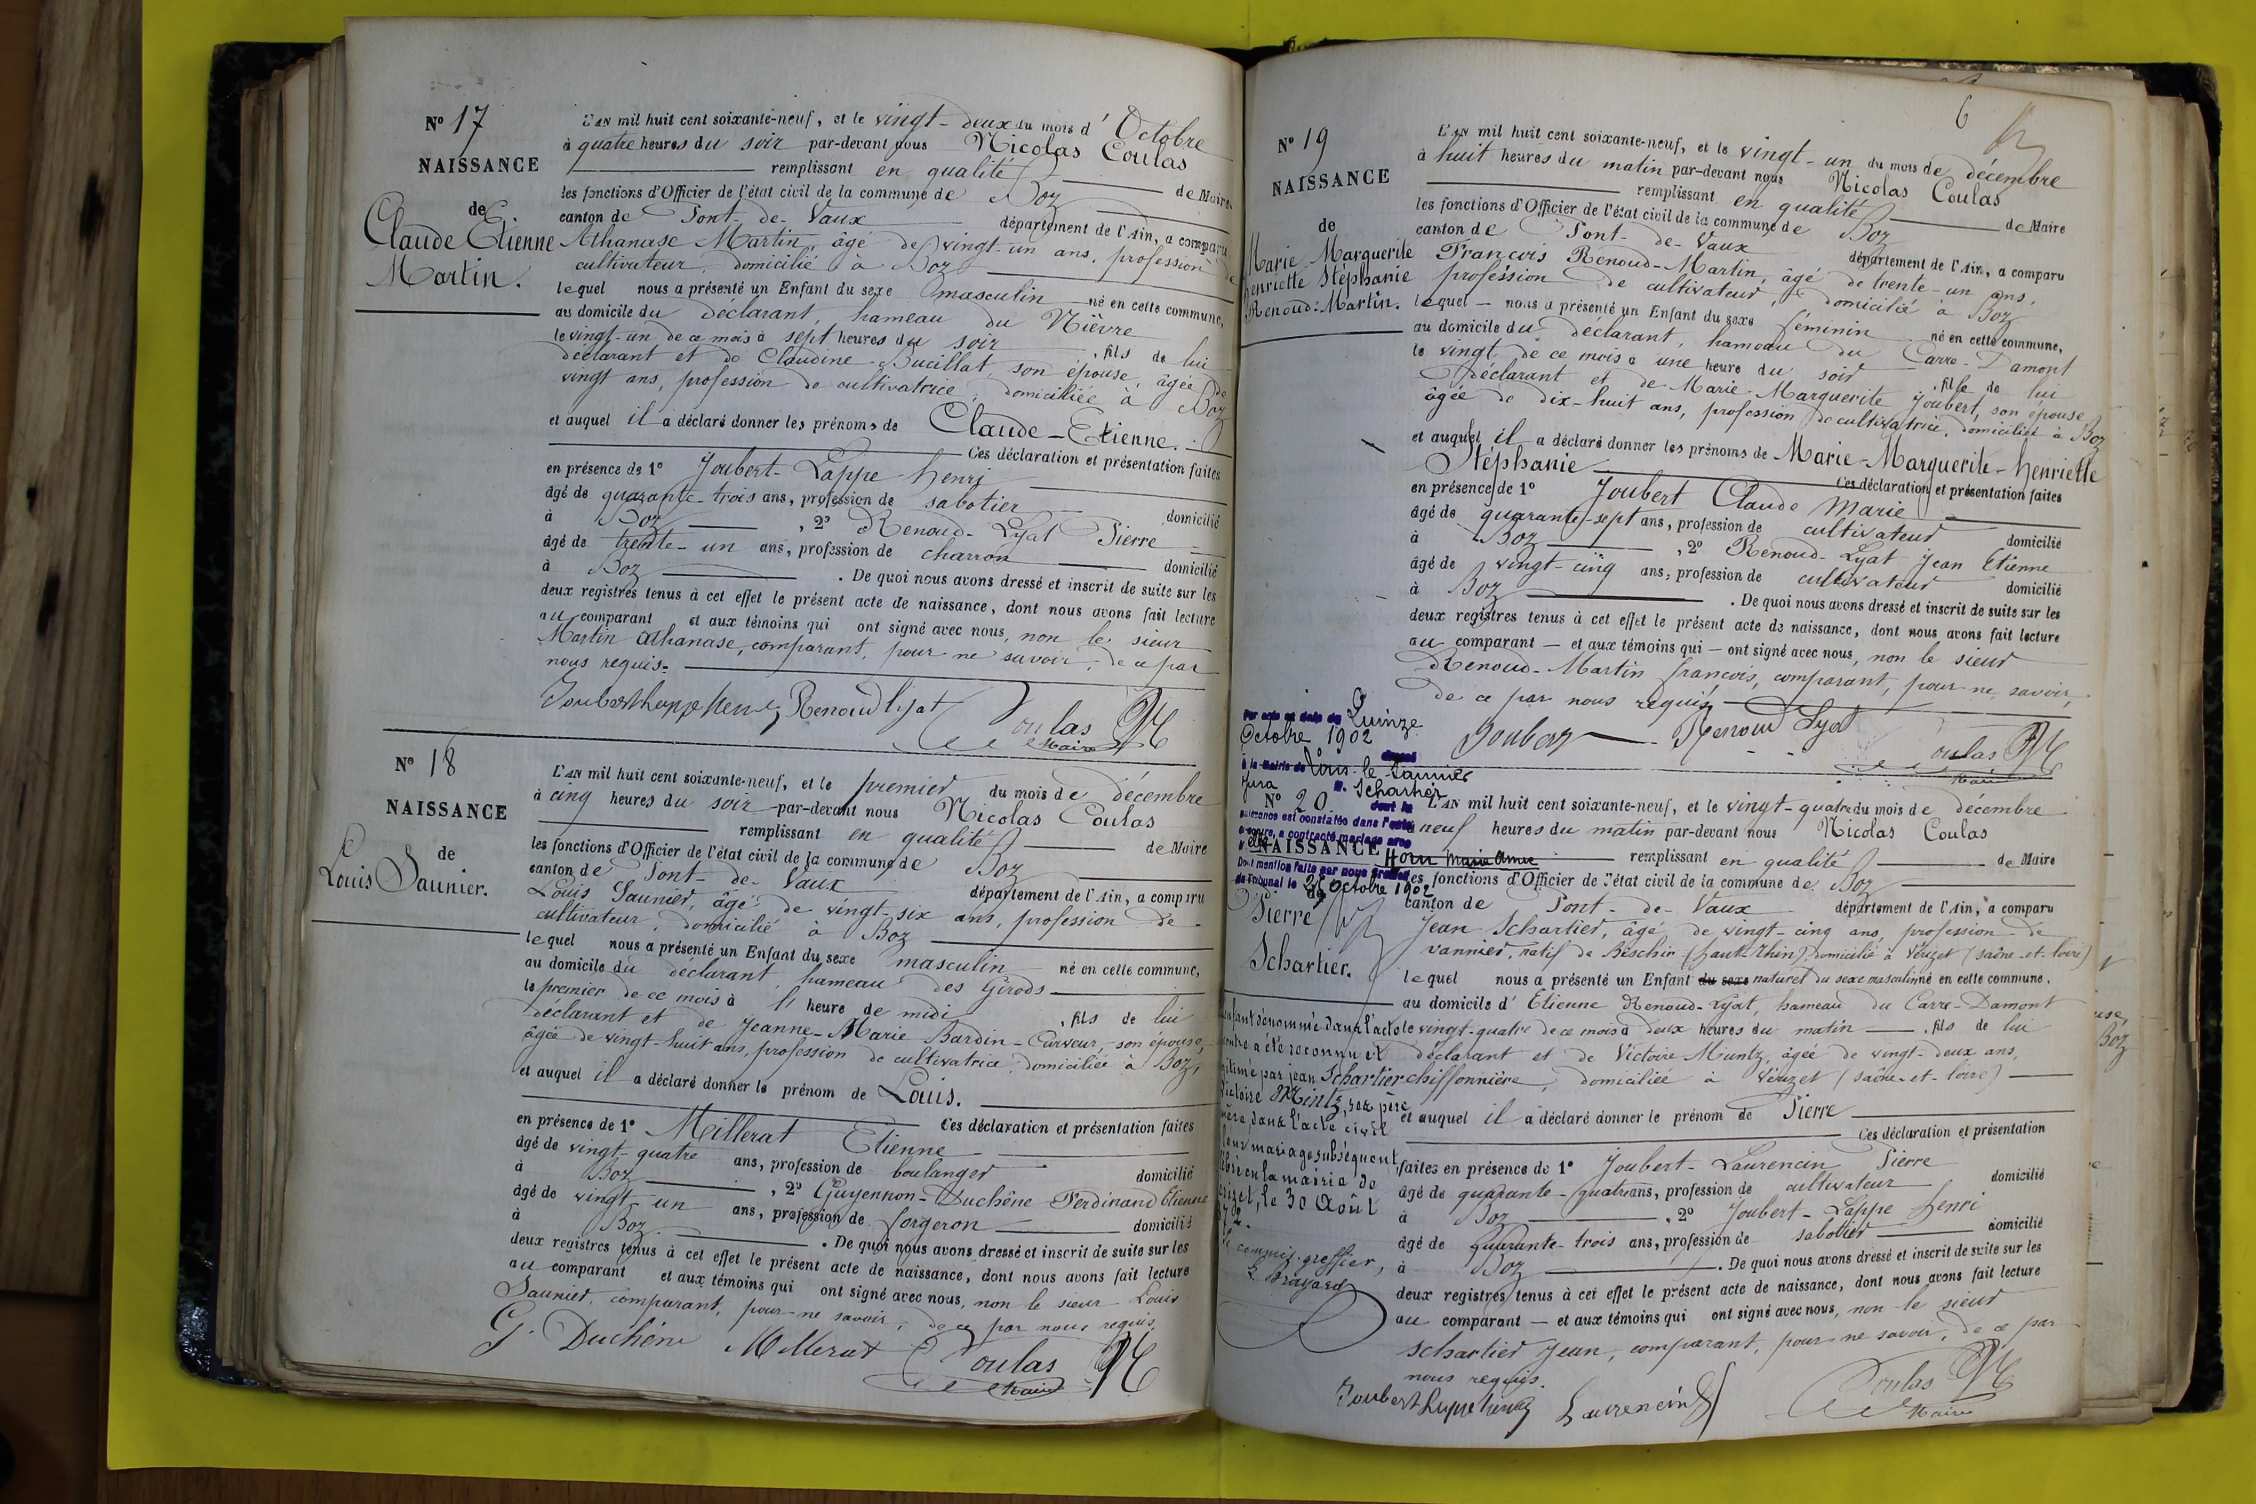 N° 17
NAISSANCE
de
Claude Etienne
Martin.
L'AN mil huit cent soixante-neuf, et le vingt-deux du mois d'Octobre
à quatre heures du soir par-devant nous Nicolas Coulas
remplissant en qualité de Maire
les fonctions d'Officier de l'état civil de la commune de Boz
canton de Pont-de-Vaux département de l'Ain, a comparu
Athanase Martin, âgé de vingt-un ans, profession de
cultivateur, domicilié à Boz
lequel nous a présenté un Enfant du sexe masculin né en cette commune,
au domicile du déclarant, hameau du Nièvre
le vingt-un de ce mois à sept heures du soir, fils de lui
déclarant et de Claudine Bucillat, son épouse, âgée de
vingt ans, profession de cultivatrice, domiciliée à Boz
et auquel il a déclaré donner les prénoms de Claude-Etienne.
Ces déclaration et présentation faites
en présence de 1° Joubert-Lappe henri
âgé de quarante-trois ans, profession de sabotier domicilié
à Boz, 2° Renoud-Lyat Pierre
âgé de trente-un ans, profession de charron domicilié
à Boz. De quoi nous avons dressé et inscrit de suite sur les
deux registres tenus à cet effet le présent acte de naissance, dont nous avons fait lecture
au comparant et aux témoins qui ont signé avec nous, non le sieur
Martin Athanase, comparant, pour ne savoir, de ce par
nous requis.
Joubert Lappe henri Renoud Lyat Coulas
Maire
N° 18
NAISSANCE
de
Louis Saunier.
L'AN mil huit cent soixante-neuf, et le premier du mois de décembre
à cinq heures du soir par-devant nous Nicolas Coulas
remplissant en qualité de Maire
les fonctions d'Officier de l'état civil de la commune de Boz
canton de Pont-de-Vaux département de l'Ain, a comparu
Louis Saunier, âgé de vingt-six ans, profession de
cultivateur, domicilié à Boz
lequel nous a présenté un Enfant du sexe masculin né en cette commune,
au domicile du déclarant, hameau des Girods
le premier de ce mois à heure de midi, fils de lui
déclarant et de Jeanne-Marie Bardin-Carveur, son épouse,
âgée de vingt-huit ans, profession de cultivatrice, domiciliée à Boz,
et auquel il a déclaré donner le prénom de Louis.
Ces déclaration et présentation faites
en présence de 1° Millerat Etienne
âgé de vingt-quatre ans, profession de boulanger domicilié
à Boz, 2° Guyennon-Duchêne Ferdinand Etienne
âgé de vingt un ans, profession de forgeron domicilié
à Boz. De quoi nous avons dressé et inscrit de suite sur les
deux registres tenus à cet effet le présent acte de naissance, dont nous avons fait lecture
au comparant et aux témoins qui ont signé avec nous, non le sieur Louis
Saunier, comparant, pour ne savoir, de ce par nous requis.
G. Duchêne Millerat Coulas
Maire
6
N° 19
NAISSANCE
de
Marie Marguerite
henriette Stéphanie
Renoud-Martin.
L'AN mil huit cent soixante-neuf, et le vingt-un du mois de décembre
à huit heures du matin par-devant nous Nicolas Coulas
remplissant en qualité de Maire
les fonctions d'Officier de l'état civil de la commune de Boz
canton de Pont-de-Vaux département de l'Ain, a comparu
François Renoud-Martin, âgé de trente-un ans,
profession de cultivateur, domicilié à Boz
lequel nous a présenté un Enfant du sexe féminin né en cette commune,
au domicile du déclarant, hameau du Carre-Damont
le vingt de ce mois à une heure du soir, fille de lui
déclarant et de Marie-Marguerite Joubert, son épouse
âgée de dix-huit ans, profession de cultivatrice, domiciliée à Boz
et auquel il a déclaré donner les prénoms de Marie-Marguerite-henriette
Stéphanie
Ces déclaration et présentation faites
en présence de 1° Joubert Claude Marie
âgé de quarante-sept ans, profession de cultivateur domicilié
à Boz, 2° Renoud-Lyat Jean Etienne
âgé de vingt-cinq ans, profession de cultivateur domicilié
à Boz. De quoi nous avons dressé et inscrit de suite sur les
deux registres tenus à cet effet le présent acte de naissance, dont nous avons fait lecture
au comparant — et aux témoins qui — ont signé avec nous, non le sieur
Renoud-Martin françois, comparant, pour ne savoir,
de ce par nous requis.
Joubert Renoud Lyat Coulas
Maire
Par acte en date du Quinze
Octobre 1902 dressé
à la Mairie de Lons-le-Saunier
Jura M. Schartier
dont la
naissance est constatée dans l'acte
ci-contre, a contracté mariage avec
Horn Marie Anne
Dont mention faite par nous Greffier
du Tribunal le 21 Octobre 1902
N° 20
NAISSANCE
de
Pierre
Schartier.
L'enfant dénommé dans l'acte
contre a été reconnu et
légitimé par jean Schartier
Victoire Mintz, ses père
mère, dans l'acte civil
leur mariage subséquent,
célébré en la mairie de
Vérizet, le 30 Août
Le commis-greffier,
L. Brayard
L'AN mil huit cent soixante-neuf, et le vingt-quatre du mois de décembre
à neuf heures du matin par-devant nous Nicolas Coulas
remplissant en qualité de Maire
les fonctions d'Officier de l'état civil de la commune de Boz
canton de Pont-de-Vaux département de l'Ain, a comparu
Jean Schartier, âgé de vingt-cinq ans, profession de
vannier, natif de Bischir (haut-Rhin) domicilié à Vérizet (saône-et-loire)
lequel nous a présenté un Enfant du sexe naturel du sexe masculin né en cette commune.
au domicile d'Etienne Renoud-Lyat, hameau du Carre-Damont
le vingt-quatre de ce mois à deux heures du matin, fils de lui
déclarant et de Victoire Muntz, âgée de vingt-deux ans,
chiffonnière, domiciliée à Vérizet (saône-et-loire)
et auquel il a déclaré donner le prénom de Pierre
Ces déclaration et présentation
faites en présence de 1° Joubert-Laurencin Pierre
âgé de quarante-quatre ans, profession de cultivateur domicilié
à Boz, 2° Joubert-Lappe henri
âgé de quarante-trois ans, profession de sabotier domicilié
à Boz. De quoi nous avons dressé et inscrit de suite sur les
deux registres tenus à cet effet le présent acte de naissance, dont nous avons fait lecture
au comparant — et aux témoins qui ont signé avec nous, non le sieur
Schartier Jean, comparant, pour ne savoir, de ce par
nous requis.
Joubert Lappe henri Laurencin Coulas
Maire